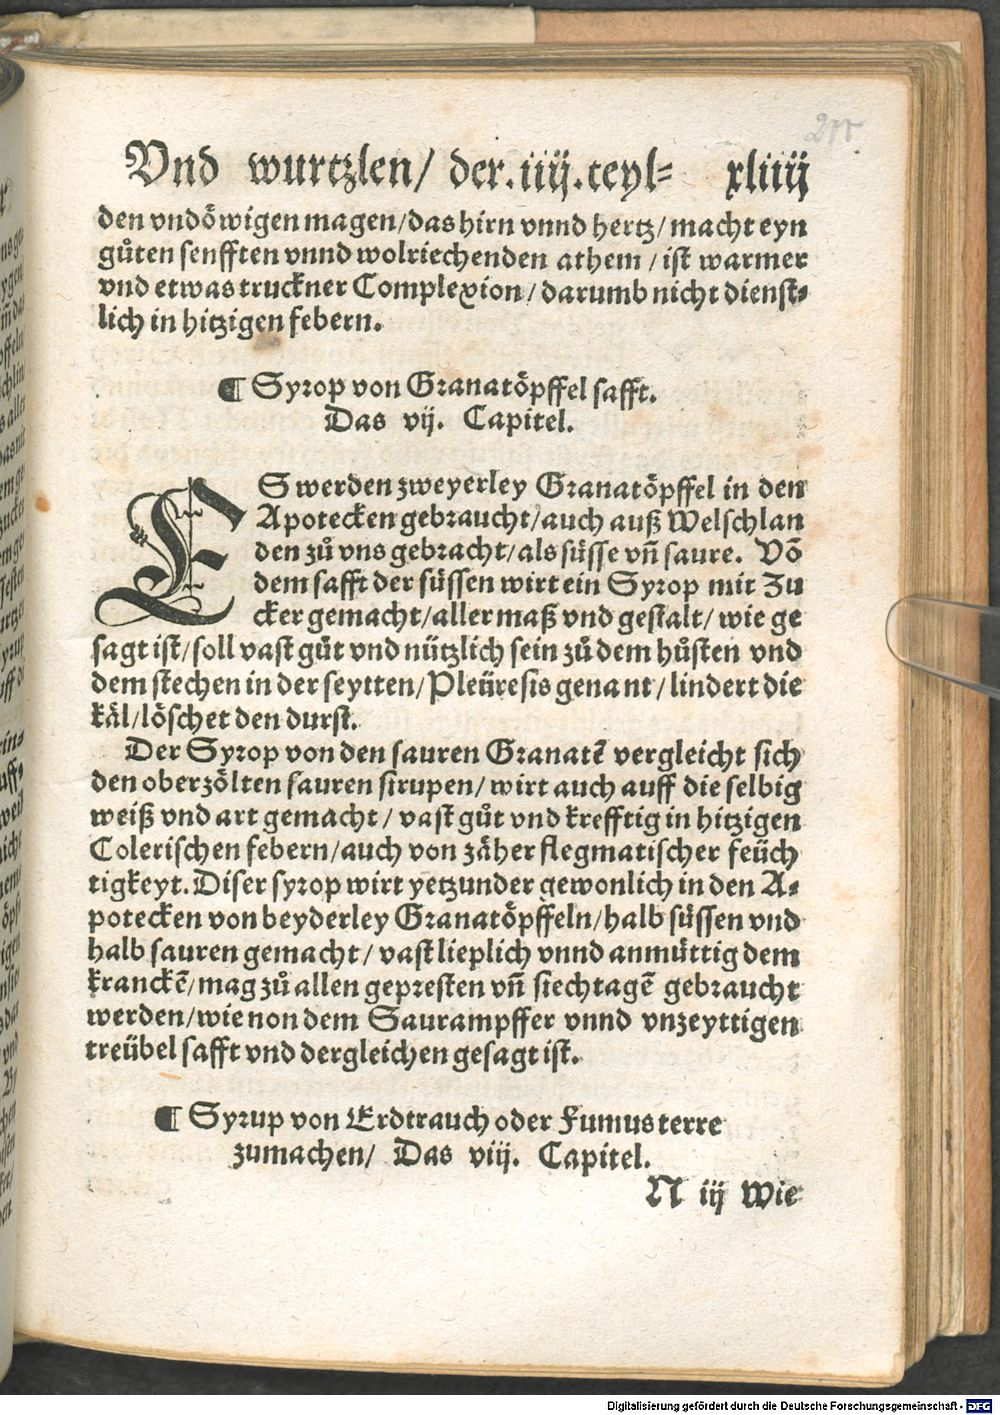 Vnd wurtzlen/ der.iiij.teyl⸗ xliiij
den vndöwigen magen/das hirn vnnd hertz/macht eyn
gůten senfften vnnd wolriechenden athem/ist warmer
vnd etwas truckner Complexion/darumb nicht dienst⸗
lich in hitzigen febern.
¶ Syrop von Granatöpffel safft.
Das vij. Capitel.
ES werden zweyerley Granatöpffel in den
Apotecken gebraucht/auch auß Welschlan
den zů vns gebracht/als süsse vñ saure. Võ
dem safft der süssen wirt ein Syrop mit Zu
cker gemacht/aller maß vnd gestalt/wie ge
sagt ist/soll vast gůt vnd nützlich sein zů dem hůsten vnd
dem stechen in der seytten/Pleüresis genant/lindert die
käl/löschet den durst.
Der Syrop von den sauren Granatẽ vergleicht sich
den oberzölten sauren sirupen/wirt auch auff die selbig
weiß vnd art gemacht/vast gůt vnd krefftig in hitzigen
Colerischen febern/auch von zäher flegmatischer feüch
tigkeyt. Diser syrop wirt yetzunder gewonlich in den A⸗
potecken von beyderley Granatöpffeln/halb süssen vnd
halb sauren gemacht/vast lieplich vnnd anmüttig dem
kranckẽ/mag zů allen gepresten vñ siechtagẽ gebraucht
werden/wie non dem Saurampffer vnnd vnzeyttigen
treübel safft vnd dergleichen gesagt ist.
¶ Syrup von Erdtrauch oder Fumus terre
zumachen/ Das viij. Capitel.
N iij Wie
Digitalisierung gefördert durch die Deutsche Forschungsgemeinschaft - DFG